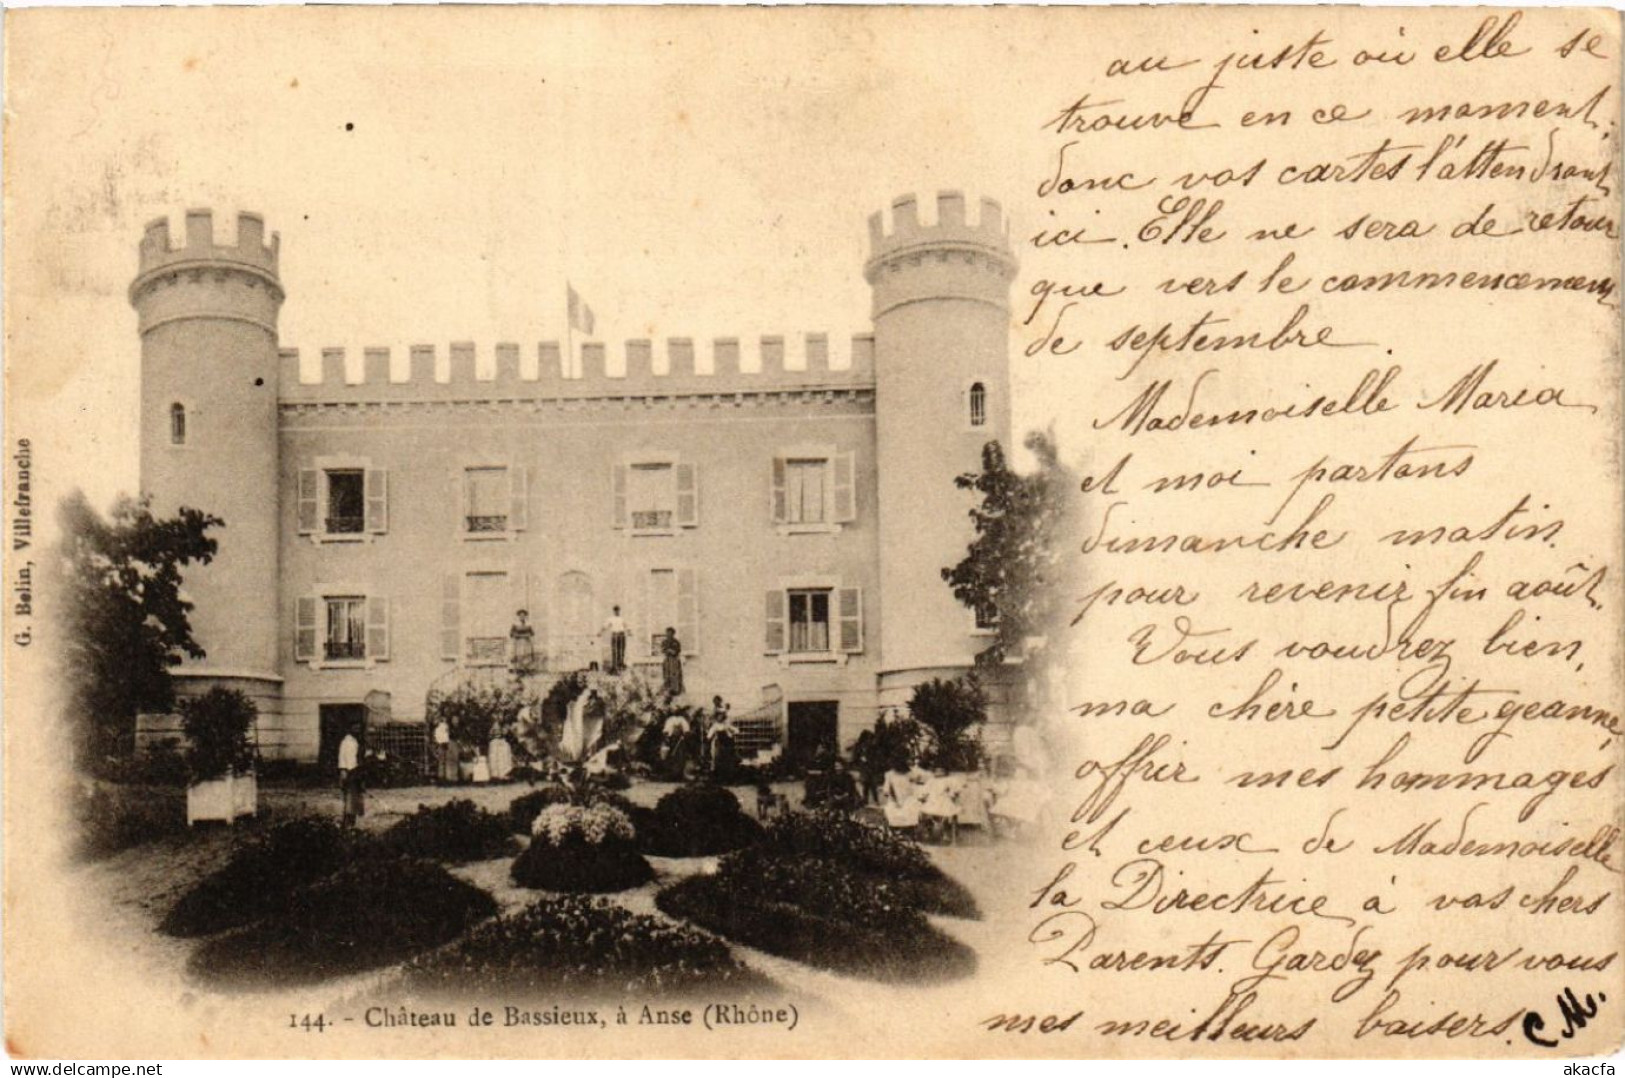 au juste où elle se
trouve en ce moment;
donc vos cartes l'attendront
ici. Elle ne sera de retour
que vers le commencement
de septembre.
Mademoiselle Maria
et moi partons
dimanche matin
pour revenir fin août.
Vous voudrez bien,
ma chère petite geanne,
offrir mes hommages
et ceux de Mademoiselle
la Directrice à vos chers
Parents. Gardez pour vous
mes meilleurs baisers. C M.
G. Belin, Villefranche
144. - Château de Bassieux, à Anse (Rhône)
akacfa